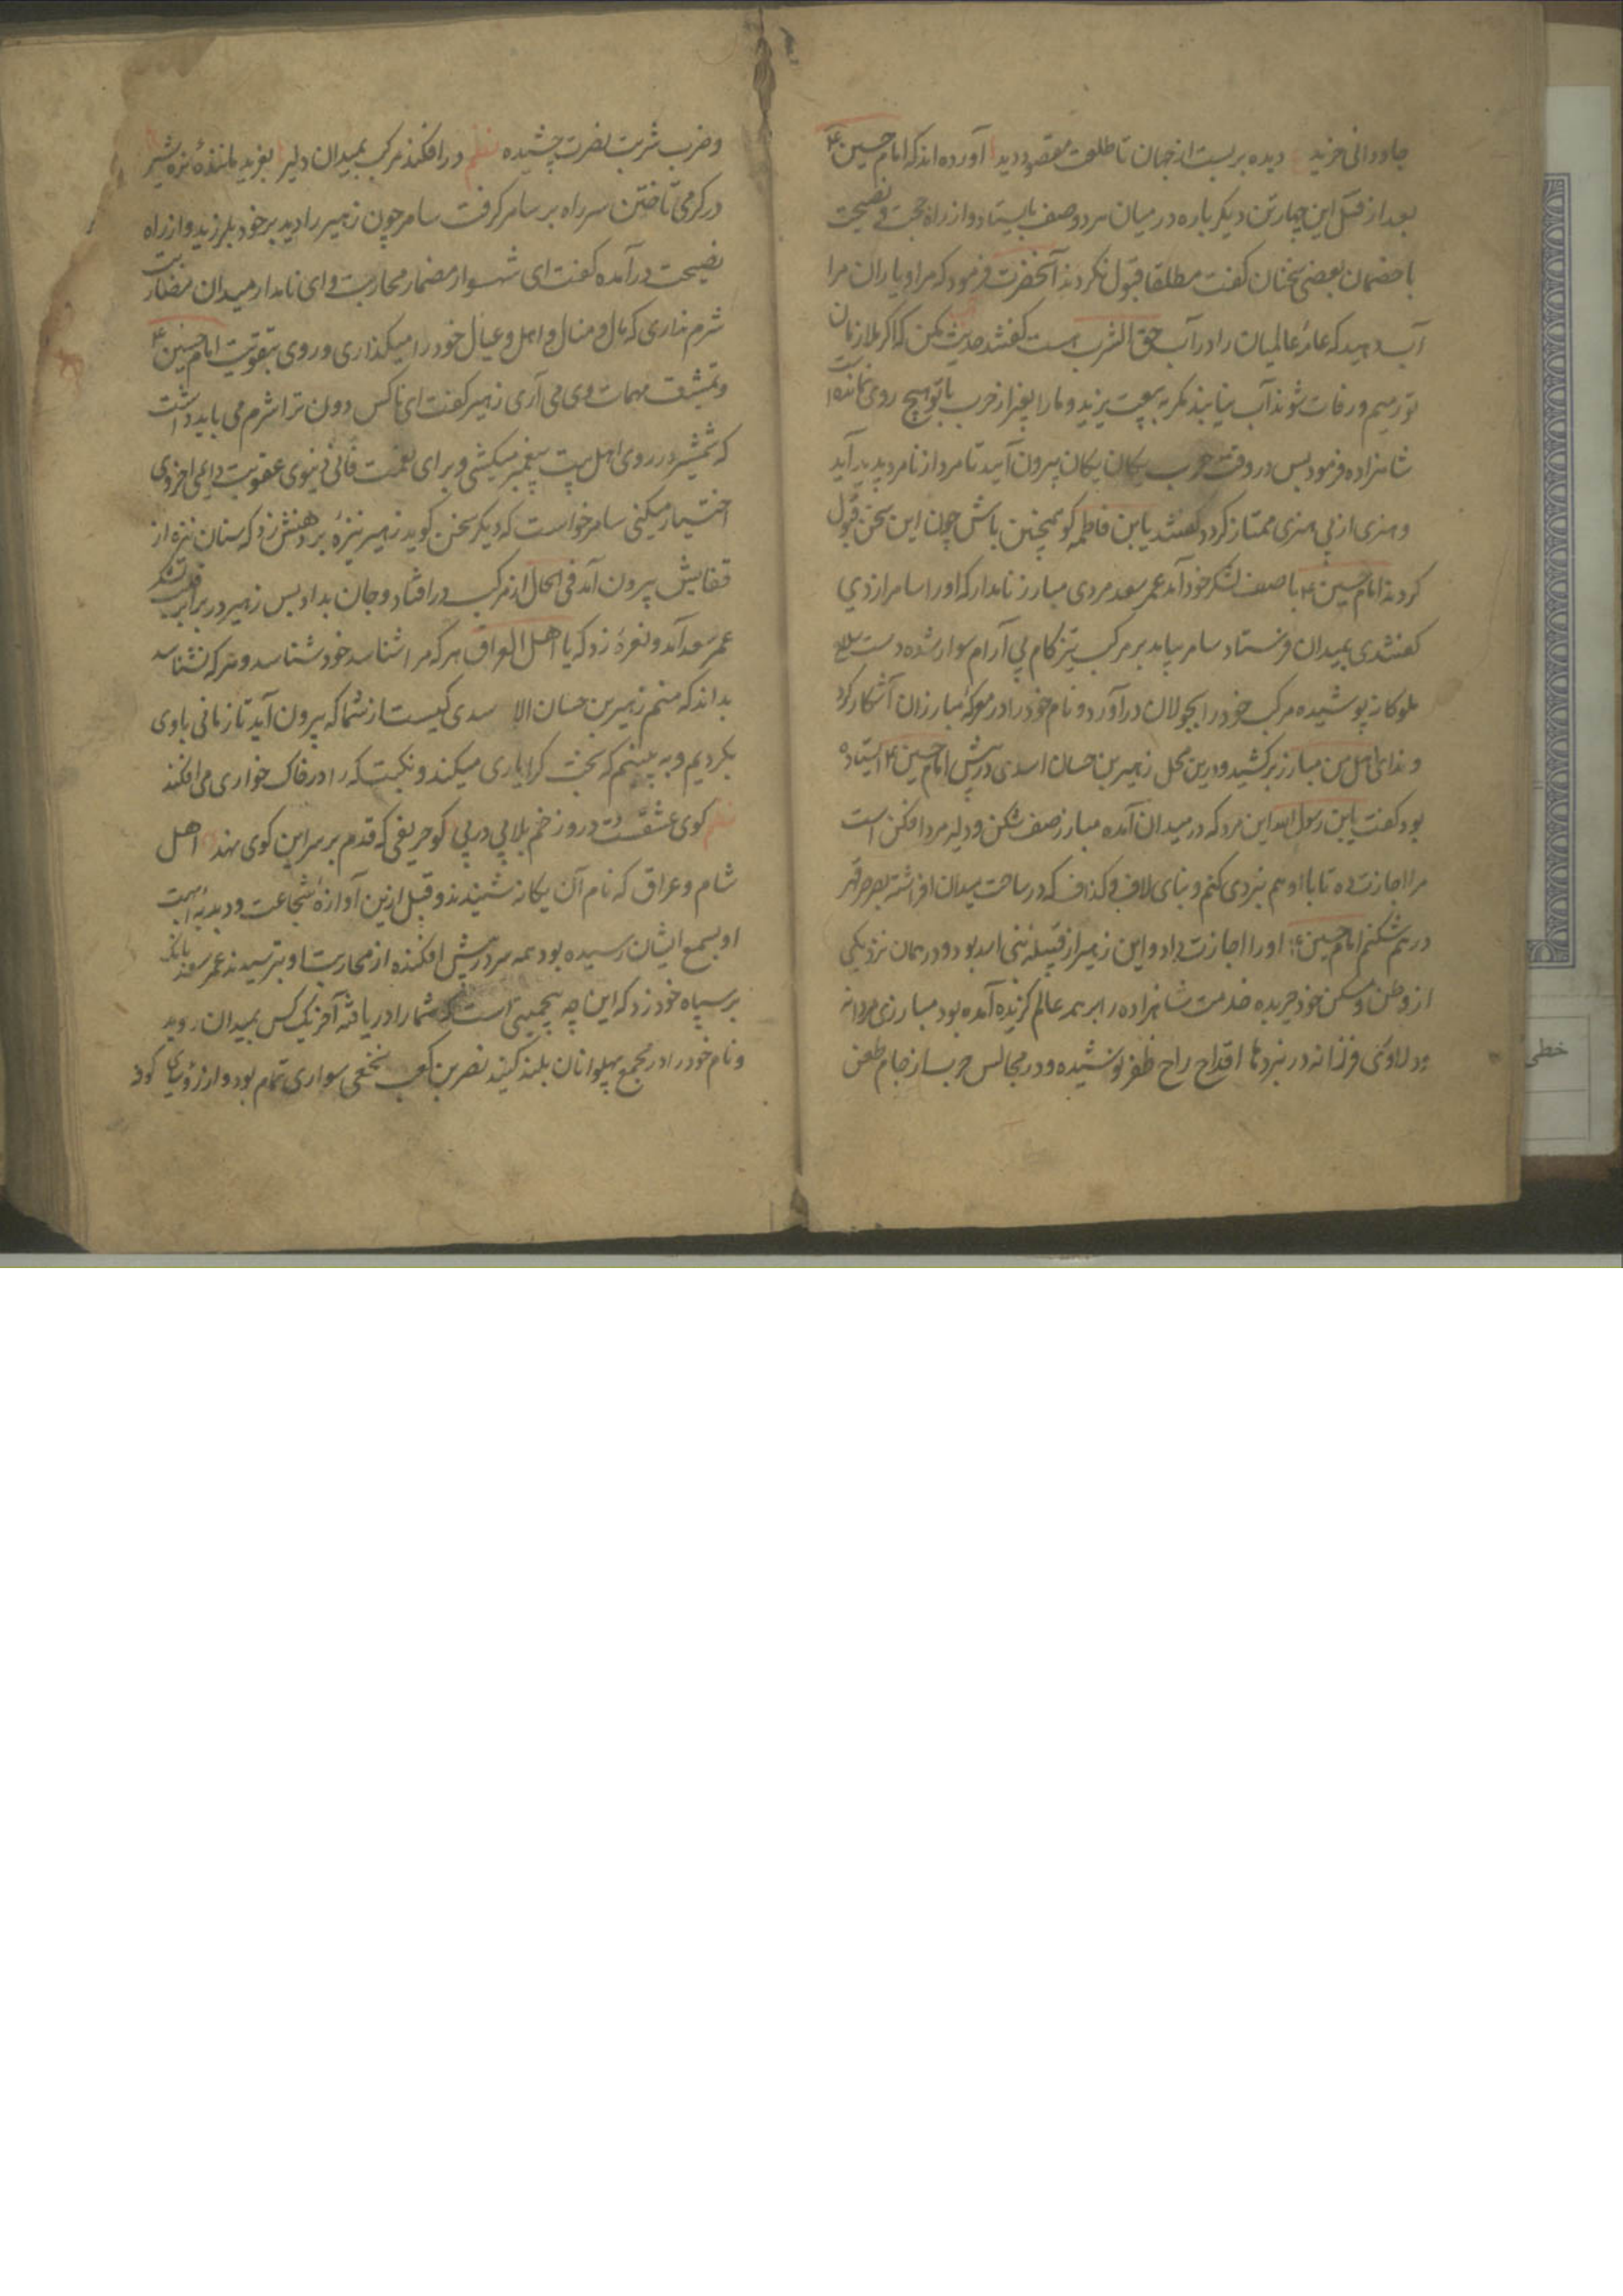 جاودانی خرید دیده بربست از جهان تا طلعت مقصود دید آورده‌اند که امام حسین ع
بعد از قتل این چهار تن دیگر باره در میان هر دو صف بایستاد و از راه حجت و نصیحت
با خصمان بعضی سخنان گفت مطلقا قبول نکردند آنحضرت فرمود که مرا و یاران مرا
آب دهید که عامهٔ عالمیان را در آب حق الشرب است گفتند حدیث مکن که اگر ملازمان
تو رمیم و رفات شوند آب نیابند مگر به بیعت یزید و ما را بغیر از حرب با تو هیچ روی نمانده
شاهزاده فرمود پس در وقت حرب یکان یکان بیرون آیید تا مرد از نامرد پدید آید
و هنری از بی هنری ممتاز گردد گفتند یا بن فاطمه گو همچنین باش چون این سخن قبول
کردند امام حسین ع با صف لشکر خود آمد عمر سعد مردی مبارز نامدار که او را سامر ازدی
گفتندی بمیدان فرستاد سامر بیامد بر مرکب تیز کام بی آرام سوار شده دست سلاح
ملوکانه پوشیده مرکب خود را بجولان در آورد و نام خود را در معرکهٔ مبارزان آشکار کرد
و ندای هل من مبارز برکشید و درین محل زهیر بن حسان اسدی در پیش امام حسین ع ایستاده
بود گفت یا بن رسول الله این مرد که در میدان آمده مبارز صف شکن و دلیر مرد افکن است
مرا اجازت ده تا با او هم نبردی کنم و بنای لاف و گذاف که در ساحت میدان افراشته بصرصر قهر
در هم شکنم امام حسین ع او را اجازت داد و این زهیر از قبیلهٔ بنی اسد بود و در همان نزدیکی
از وطن و مسکن خود جریده خدمت شاهزاده را بر همه عالم گزیده آمده بود مبارزی مردانه
و دلاوری فرزانه در نبردها اقداح راح ظفر نوشیده و در مجالس حرب از جام طعن
و ضرب شربت نصرت چشیده نظم در افکند مرکب بمیدان دلیر بغرید مانندهٔ نره شیر
در گرمی تاختن سر راه بر سامر گرفت سامر چون زهیر را دید بر خود بلرزید و از راه
نصیحت در آمده گفت ای شهسوار مضمار محاربت و ای نامدار میدان مضاربت
شرم نداری که مال و منال و اهل و عیال خود را میگذاری و روی بتقویت امام حسین ع
و تمشیت مهمات وی می آری زهیر گفت ای ناکس دون ترا شرم می باید داشت
که شمشیر در روی اهل بیت پیغمبر میکشی و برای نعمت فانی دنیوی عقوبت داعی اخروی
اختیار میکنی سامر خواست که دیگر سخن گوید زهیر نیزهٔ بر دهنش زد که سنان نیزه از
قفایش بیرون آمد فی الحال از مرکب در افتاد و جان بداد پس زهیر در برابر قلب لشکر
عمر سعد آمد و نعرهٔ زد که یا اهل العراق هر که مرا شناسد خود شناسد و هر که نشناسد
بداند که منم زهیر بن حسان الا سدی کیست از شما که بیرون آید تا زمانی با وی
بگردیم و به بینم که بخت کرا یاری میکند و نکبت که را در خاک خواری می افکند
نظم کوی عشقست درو زخم بلا پی در پی کو حریفی که قدم بر سر این کوی نهد اهل
شام و عراق که نام آن یگانه شنیدند و قبل ازین آوازهٔ شجاعت و دبدبهٔ ابهت
او بسمع ایشان رسیده بود همه سر در پیش افکنده از محاربت او بترسیدند عمر سعد بانگ
بر سپاه خود زد که این چه بیحمیتی است که شما را دریافته آخر یک کس بمیدان روید
و نام خود را در مجمع پهلوانان بلند کنید نصر بن کعب نخعی سواری تمام بود و از رؤسای کوفه
خطی